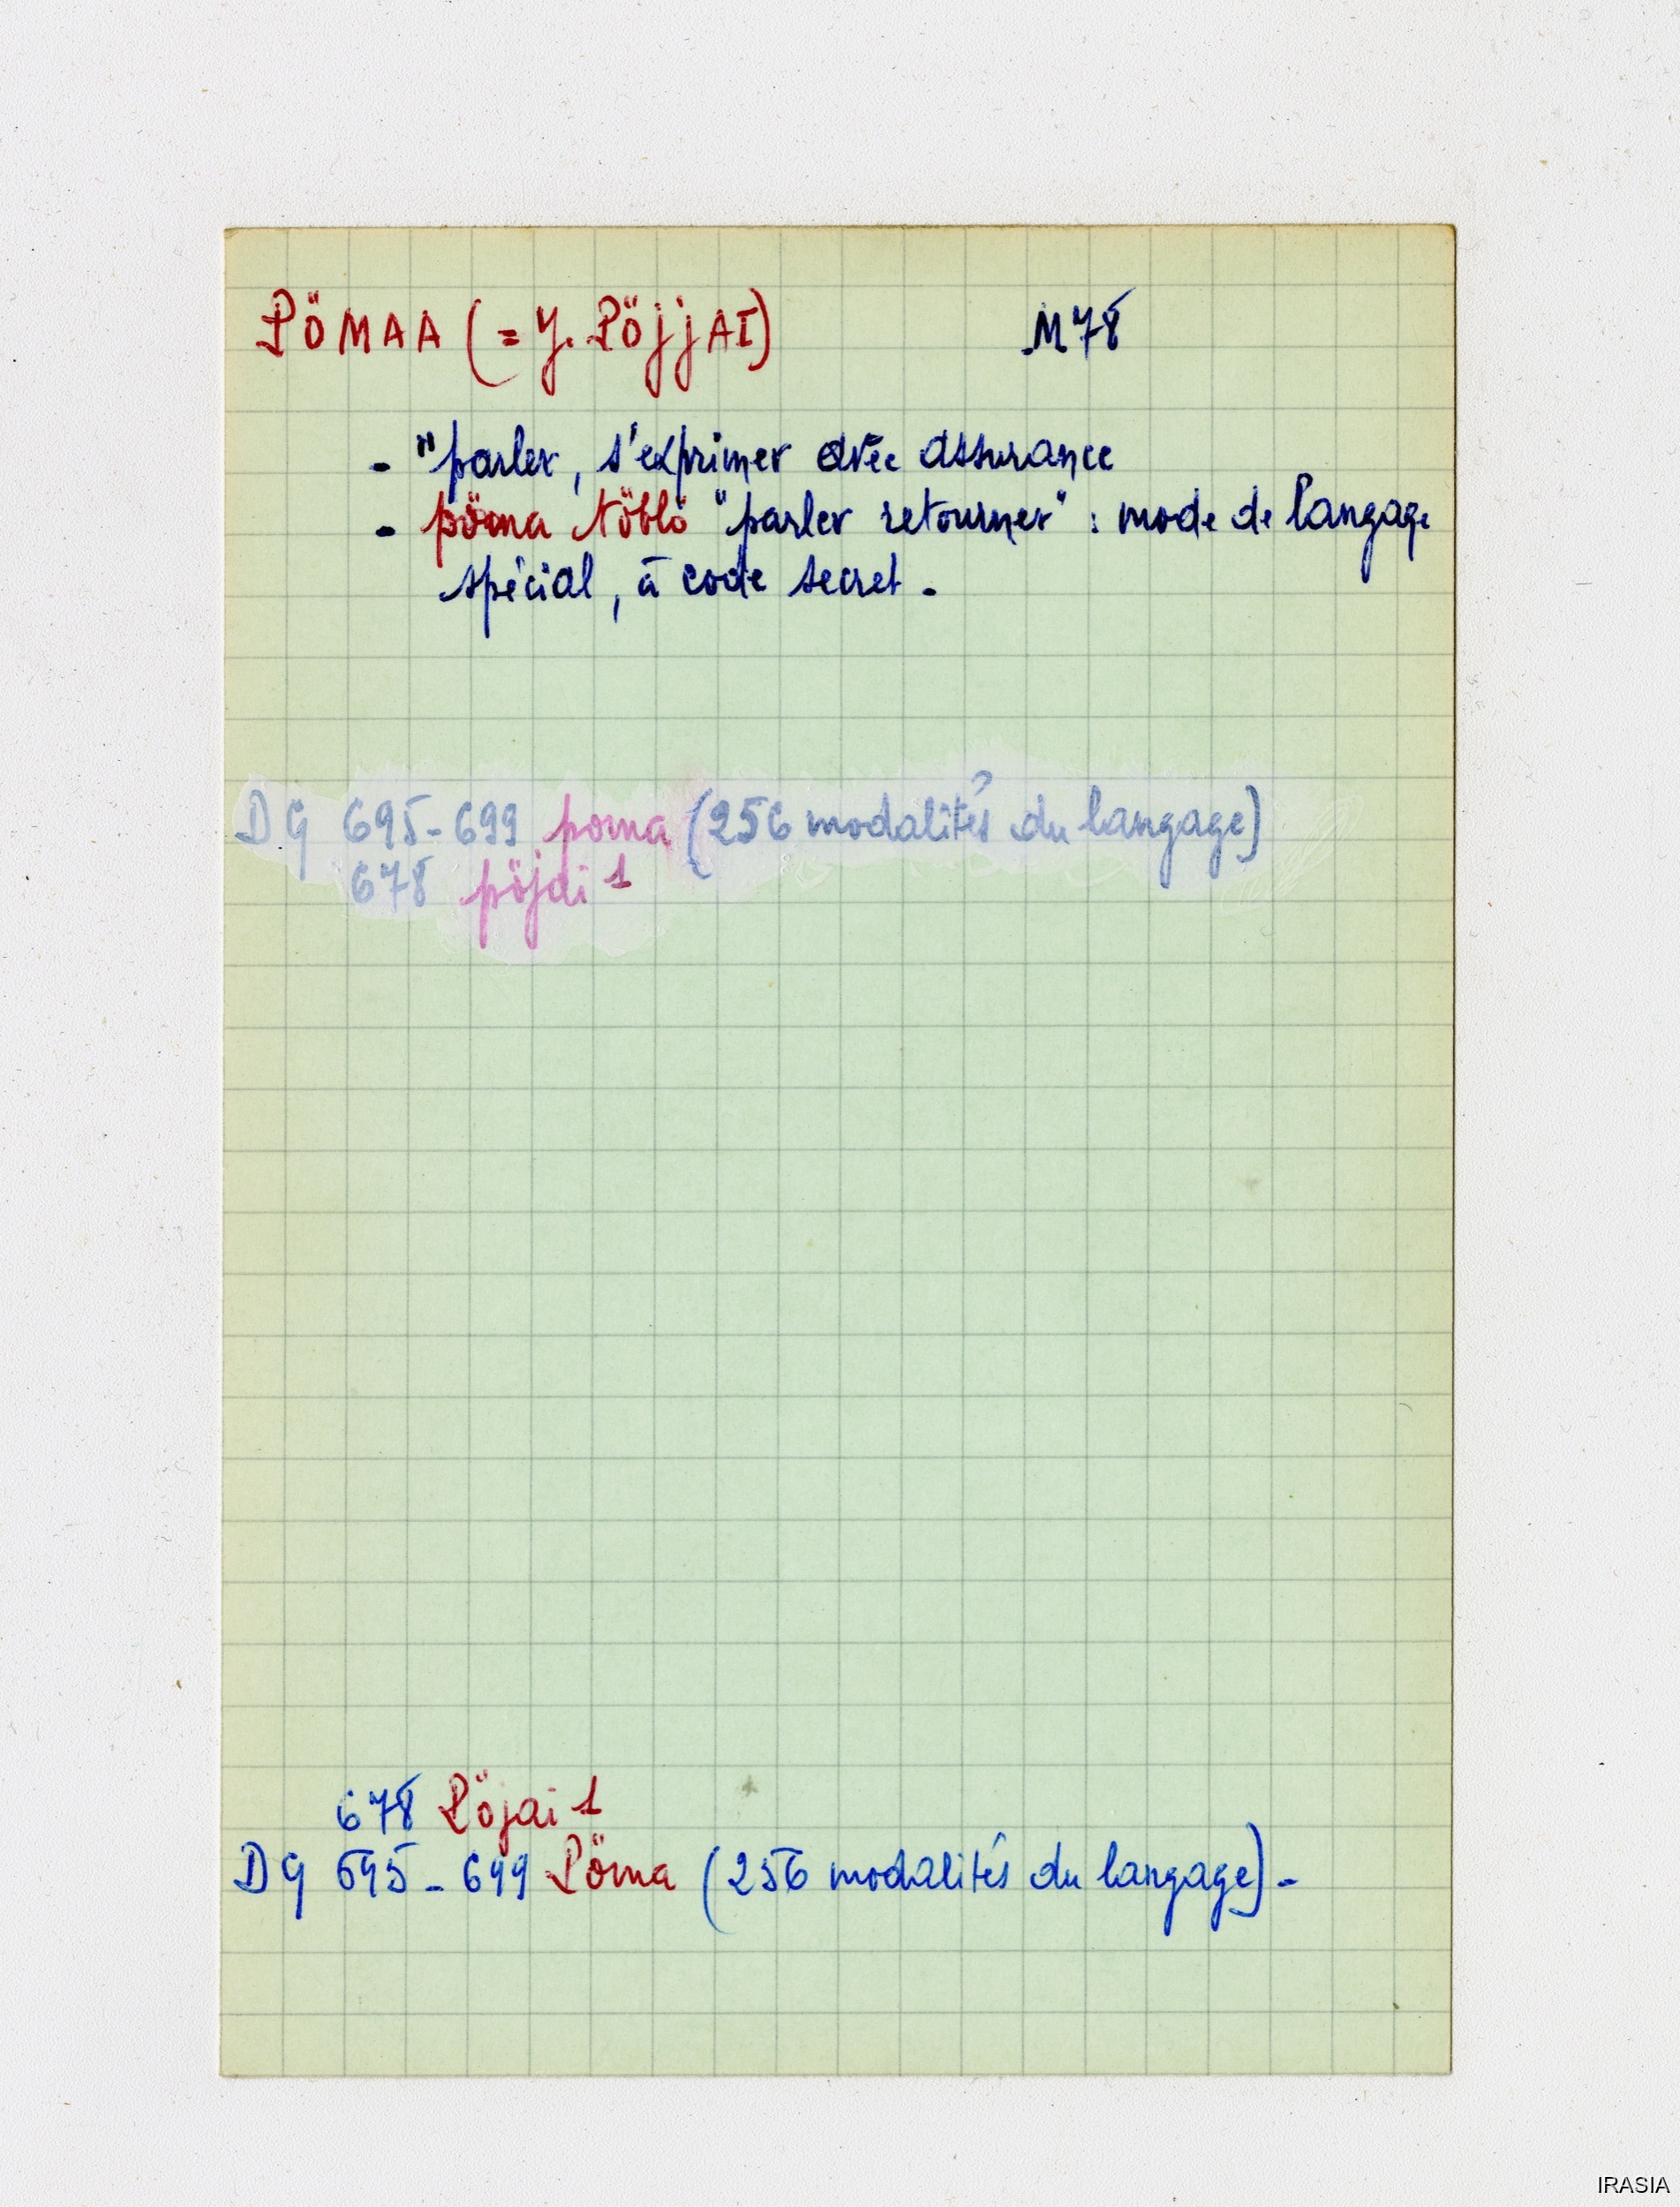 PÖMAA (= Y. PÖjjAI) M78
- "parler, s'exprimer avec assurance
- pöma töblö "parler retourner" : mode de langage
spécial, à code secret -
DG 695-699 poma (256 modalités du langage)
678 pöjai 1
678 Pöjai 1
DG 695-699 Pöma (256 modalités du langage) -
IRASIA